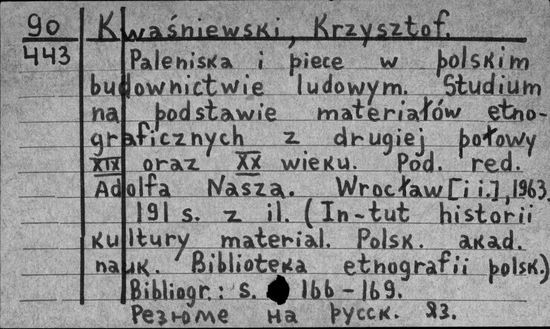 90 Kwaśniewski, Krzysztof.
443 Paleniska i piece w polskim
budownictwie ludowym. Studium
na podstawie materiałów etno-
graficznych z drugiej połowy
XIX oraz XX wieku. Pod. red.
Adolfa Nasza. Wrocław [i i.], 1963.
191 s. z il. (In-tut historii
kultury material. Polsk. akad.
nauk. Biblioteka etnografii polsk.)
Bibliogr.: s. 166-169.
Резюме на русск. яз.